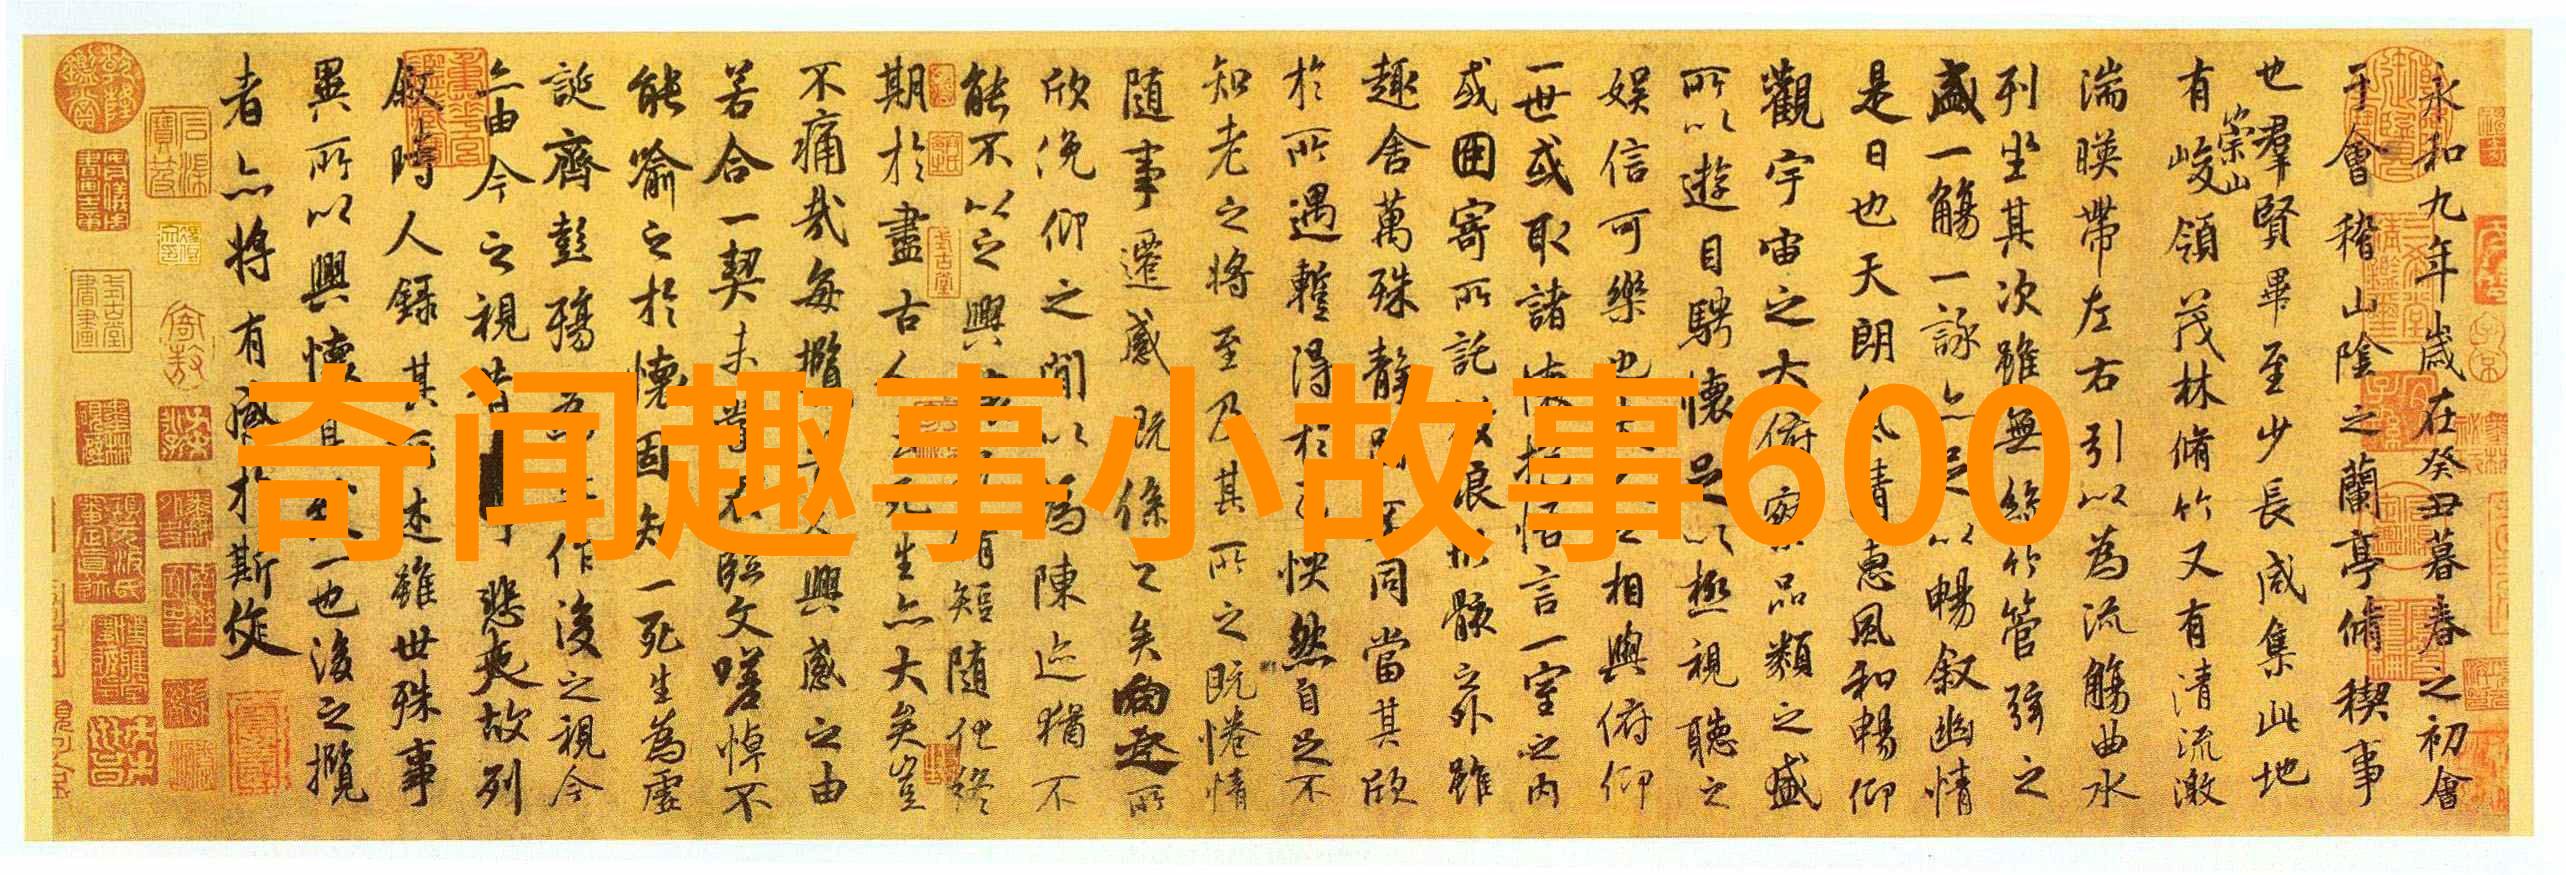 永和九年歲在癸丑暮春之初會
于會稽山陰之蘭亭脩稧事
也羣賢畢至少長咸集此地
有崇山峻領茂林脩竹又有清流激
湍暎帶左右引以為流觴曲水
列坐其次雖無絲竹管弦之
盛一觴一詠亦足以暢叙幽情
是日也天朗氣清惠風和暢仰
觀宇宙之大俯察品類之盛
所以遊目騁懷足以極視聽之
娛信可樂也夫人之相與俯仰
一世或取諸懷抱悟言一室之內
或因寄所託放浪形骸之外雖
趣舍萬殊靜躁不同當其欣
於所遇蹔得於己怏然自足不
知老之將至及其所之既惓情
隨事遷感慨係之矣向之所
欣俛仰之閒以為陳迹猶不
能不以之興懷況脩短隨化終
期於盡古人云死生亦大矣豈
不痛哉每攬昔人興感之由
若合一契未嘗不臨文嗟悼不
能喻之於懷固知一死生為虛
誕齊彭殤為妄作後之視今
亦由今之視昔悲夫故列
叙時人錄其所述雖世殊事
異所以興懷其致一也後之攬
者亦將有感於斯文
奇闻趣事小故事600